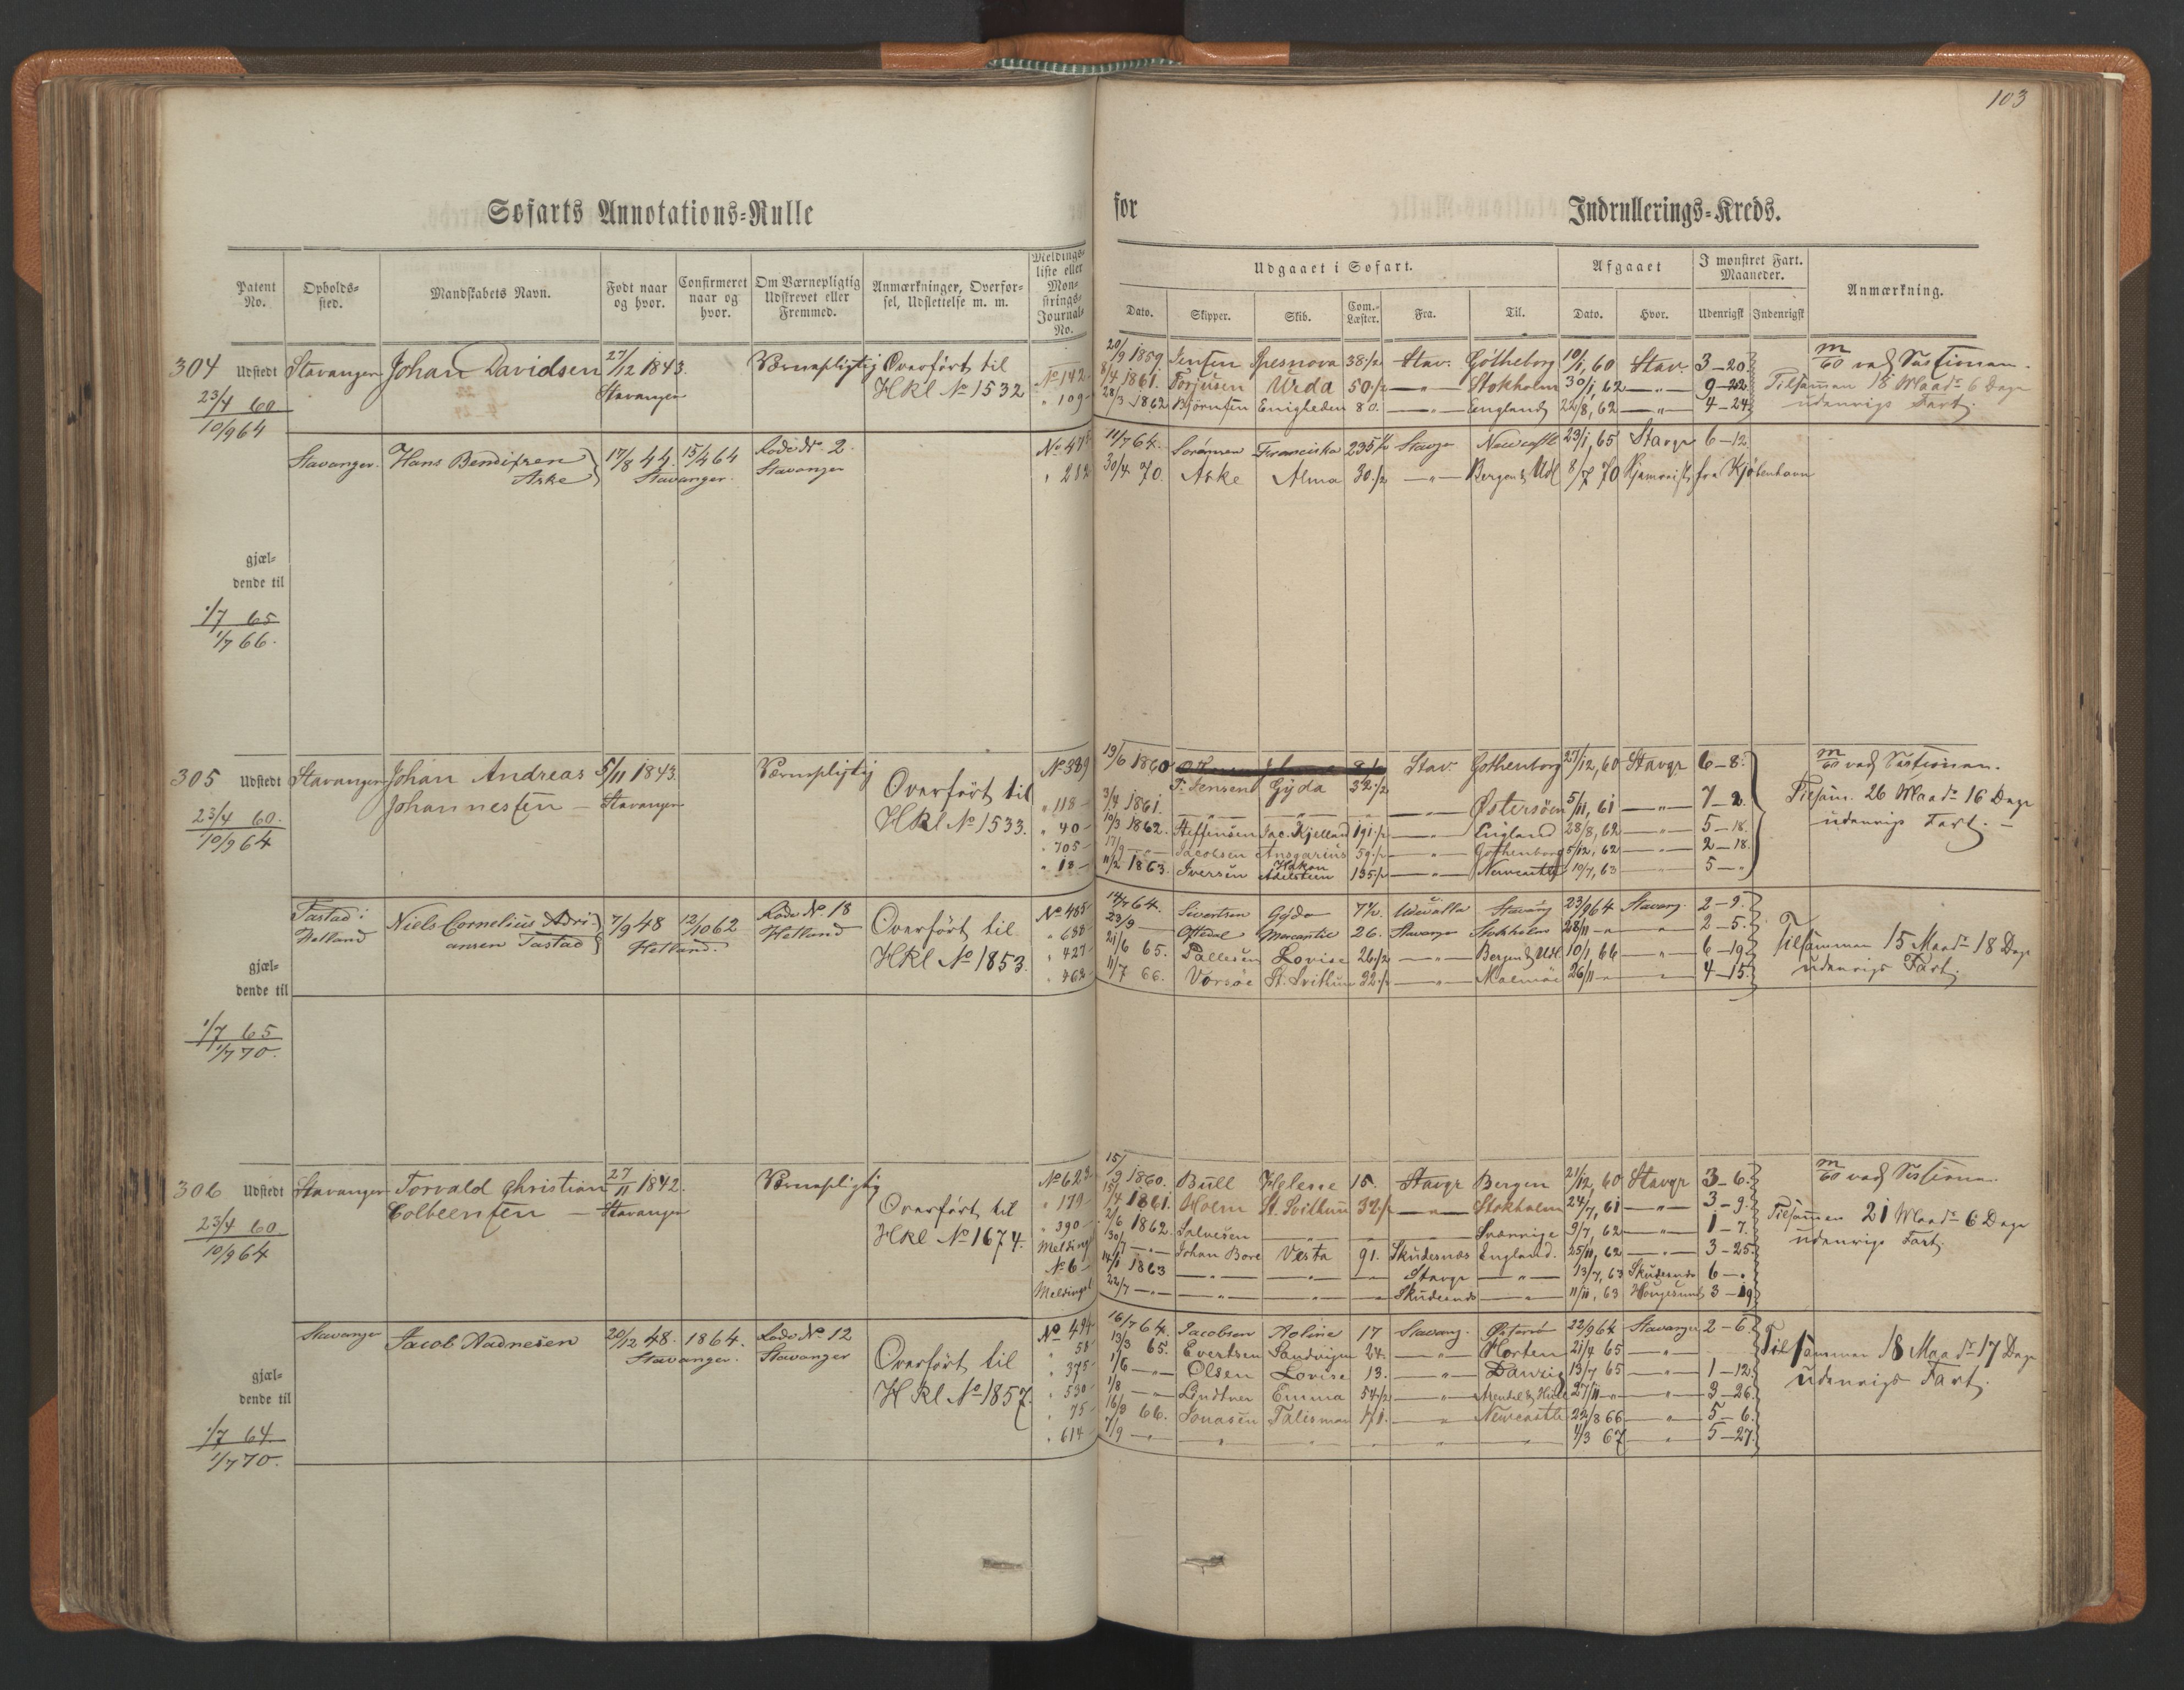 103
Søfarts Annotations=Rulle
for
Indrullerings=Kreds.
Patent No.
Opholds= sted.
Mandskabets Navn.
Født naar og hvor.
Confirmeret naar og hvor.
Om Værnepligtig Udskrevet eller Fremmed.
Anmærkninger, Overfør= sel, Udslettelse m. m.
Meldings= liste eller Møn= strings= Journal= No.
Udgaaet i Søfart.
Afgaaet
I mønstret Fart. Maaneder.
Anmærkning.
Dato.
Skipper.
Skib.
Com.= Læster.
Fra.
Til.
Dato.
Hvor.
Udenrigsk
Indenrigsk
304 Udstedt Stavanger Johan Davidsen 27/12 1843. Værnepligtig Overført til
Stavanger HKl No 1532
23/4 60
10/9 64
No 142 20/9 1859. Jensen Spesnova 38 1/2 Stav. Götheborg 10/1, 60 Stav. 3-20
8/4 1861. Torjusen Urda 50 1/2 — " — Stokholm 30/1, 62 — " — 9-22 Tilsammen 18 Maadr 6 Dage
" 109 28/3 1862 Bjørnsen Enigheden 80. — " — England 22/8, 62 — " — 4-24 udenrigs Fart.
Stavanger. Hans Bendixsen 17/8 44. 15/4 64 Rode No. 2.
Aske Stavanger. Stavanger
No 47 11/7 64. Sörensen Franciska 235 1/2 Stavgr Newcastle 23/1, 65 Stavgr 6-12
" 212 30/4 70. Aske Alma 30 1/2 — " — Bergen & Udl 8/7 70 Hjemreist fra Kjøbenhavn
gjæl=
dende til
1/7 65
1/7 66.
305 Udstedt Stavanger Johan Andreas 5/11 1843. Værnepligtig Overført til
Johannesen — Stavanger HKl No 1533.
23/4 60.
10/9 64
No 389 19/6 1860 Stav. Gothenborg 27/12, 60 Stavgr 6-8.
T. Jensen Gyda 32 1/2
" 118 3/4 1861. — " — — " — — " — Østersöen 5/11, 61 — " — 7-2. Tilsam. 26 Maadr 16 Dage
" 40 10/3 1862. Steffensen Jac. Kjelland 191 1/2 — " — England 28/8, 62 — " — 5-18. udenrigs Fart. —
" 705 17/9 — " — Jacobsen Ansgarius 59 1/2 — " — Gothenborg 5/12, 62 — " — 2-18.
" 18 11/2 1863. Iversen Hakon Adelsteen 135 1/2 — " — Newcastle 10/7, 63 — " — 5-"
Tastad i Niels Cornelius Adri 7/9 48 12/10 62 Rode No. 18 Overført til
Hetland ansen Tastad Hetland. Hetland HKl No 1853.
No 485 14/7 64. Sivertsen Gyda Udevalla Stavang 23/9 64 Stavang. 2-9.
" 688 23/9 — Oftedal Mercantil 26. Stavanger Stokholm 28/11 — " — 2-5.
" 427 21/6 65. Pallesen Lovise 26 1/2 — " — Bergen & Udl. 10/1, 66 — " — 6-19 Tilsammen 15 Maadr 18 Dage
" 462 11/7 66. Vorsöe St. Svithun 32 1/2 — " — Malmöe 26/11 — " — 4-15. udenrigs Fart.
gjæl=
dende til
1/7 65
1/7 70.
306 Udstedt Stavanger Torvald Christian 27/11 1842. Værnepligtig Overført til
Colbeensen — Stavanger HKl No 1674.
23/4 60
10/9 64
No 623 15/9 1860. Bull Helene 15. Stavgr Bergen 21/12, 60 Stavgr 3-6.
" 179 1861. Holm St. Svithun 32 1/2 — " — Stokholm 24/7, 61 — " — 3-9.
" 390 2/6 1862. Salvesen — " — — " — Sværrige 9/7, 62 — " — 1-7. Tilsammen 21 Maadr 6 Dage
Melding 30/7 — " — Johan Bore Vesta 91. Skudesnæs England. 25/11, 62 — " — 3-25 udenrigs Fart.
No 6 14/1 1863 — " — — " — Stavgr — " — 13/7, 63 Skudesnæs 6-"
Meldingsl 22/7 — " — — " — — " — Skudesnæs — " — 11/11, 63 Hougesund 3-19
Stavanger Jacob Aadnesen 20/12 48. 1864. Rode No. 12 Overført til
Stavanger. Stavanger HKl No 1857.
No 494 16/7 64. Jacobsen Aoline 17 Stavang. Østersö 22/9 64 Stavanger 2-6.
" 58 13/3 65. Evertsen Sandvigen 24. — " — Horten 21/4 65 — " — Tilsammen 18 Maadr 17 Dage
" 375 1/6 — " — Olsen Lovise 13. — " — Danzig 13/7 65 — " — 1-12. udenrigs Fart.
" 530 1/8 — " — Lindtner Emma 54 1/2 — " — 27/11 — " — 3-26.
" 75 16/3 66. Jonasen Talisman 171. — " — Newcastle 22/8 66 — " — 5-6.
" 614 7/9 — " — — " — — " — — " — 1/3 67 — " — 5-27.
gjæl=
dende til
1/7 64
1/7 70.